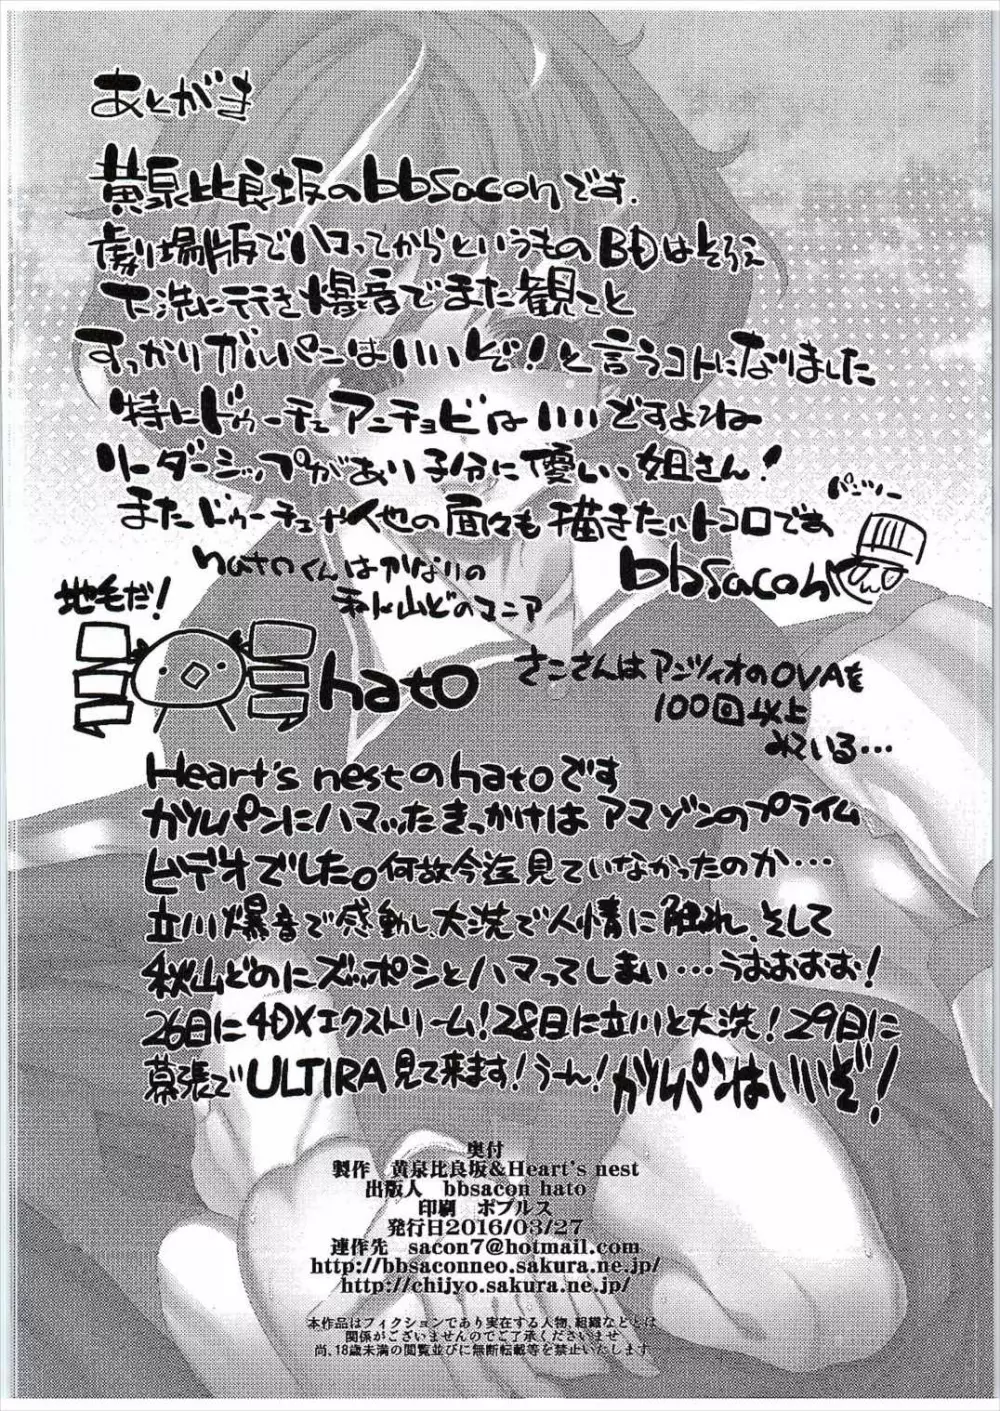 あとがき
黄泉比良坂のbbsaconです.
劇場版でハマってからというものBDはそろえ
大洗に行き爆音でまた観てと
すっかりガルパンはいいぞ!と言うコトになりました
特にドゥーチェアンチョビはいいですよね
リーダーシップがあり子分に優しい姐さん!
またドゥーチェや他の面々も描きたいトコロです
パンツァー
bbsacon
hatoくんはかなりの
秋山どのマニア
地毛だ!
hato
さこさんはアンツィオのOVAを
100回以上
みている…
Heart's nestのhatoです
ガルパンにハマったきっかけはアマゾンのプライム
ビデオでした。何故今迄見ていなかったのか…
立川爆音で感動し、大洗で人情に触れ、そして
秋山どのにズッポシとハマってしまい…うおおおお!
26日に4DXエクストリーム!28日に立川と大洗!29日に
幕張でULTIRA見て来ます!うーん!ガルパンはいいぞ!
奥付
製作 黄泉比良坂&Heart's nest
出版人 bbsacon hato
印刷 ポプルス
発行日2016/03/27
連作先 sacon7@hotmail.com
http://bbsaconneo.sakura.ne.jp/
http://chijyo.sakura.ne.jp/
本作品はフィクションであり実在する人物、組織などとは
関係がございませんのでご了承くださいませ
尚、18歳未満の閲覧並びに無断転載等を禁止いたします